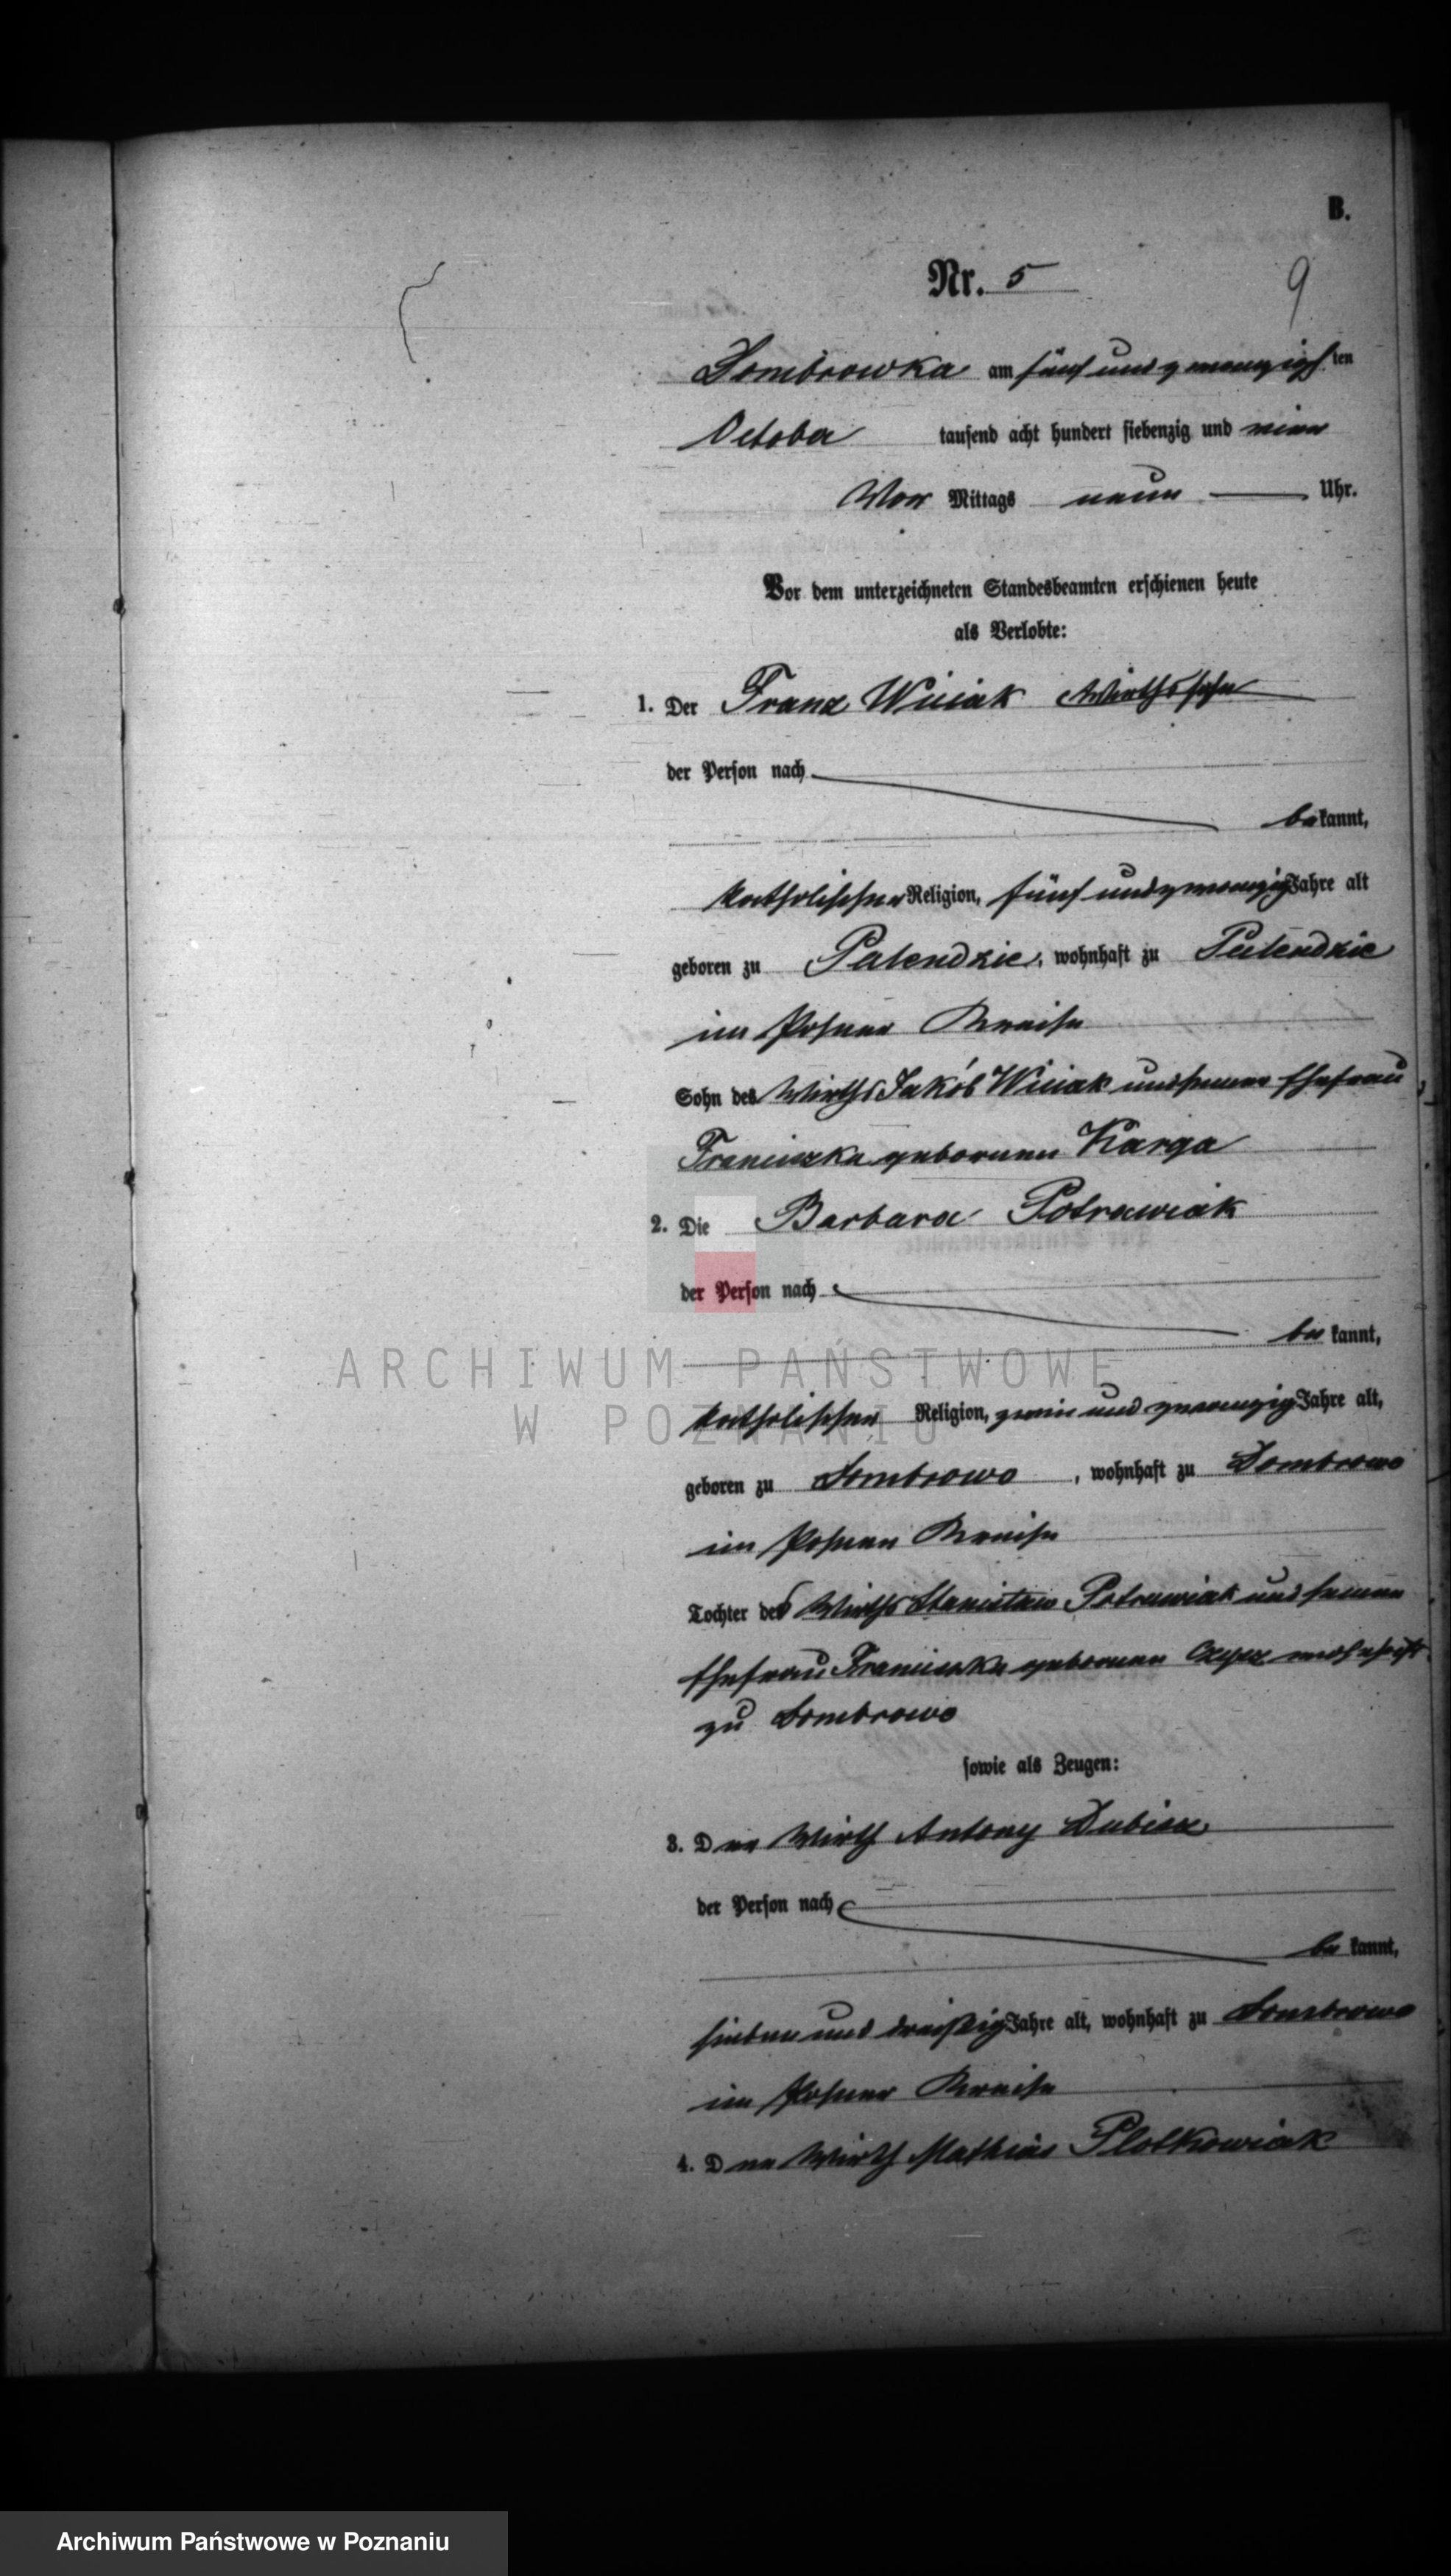 B.
Nr. 5
9
Dombrowka am fünf und zwanzigsten
October tausend acht hundert siebenzig und vier
Vor Mittags neun Uhr.
Vor dem unterzeichneten Standesbeamten erschienen heute
als Verlobte:
1. Der Franz Wiciak Wirthssohn
der Person nach
bekannt,
katholischer Religion, fünf und zwanzig Jahre alt
geboren zu Palendzie, wohnhaft zu Palendzie
im Posener Kreise
Sohn des Wirths Jakób Wiciak und seiner Ehefrau
Franciszka geborenen Karga
2. Die Barbara Potrawiak
der Person nach
bekannt,
ARCHIWUM PAŃSTWOWE
katholischer Religion, zwei und zwanzig Jahre alt,
W POZNANIU
geboren zu Dombrowo, wohnhaft zu Dombrowo
im Posener Kreise
Tochter des Wirths Stanisław Potrawiak und seiner
Ehefrau Franciszka geborenen wohnhaft
zu Dombrowo
sowie als Zeugen:
3. Der Wirth Antony
der Person nach
bekannt,
sieben und dreißig Jahre alt, wohnhaft zu Dombrowo
im Posener Kreise
4. Der Wirth Mathias Plotkowiak
Archiwum Państwowe w Poznaniu